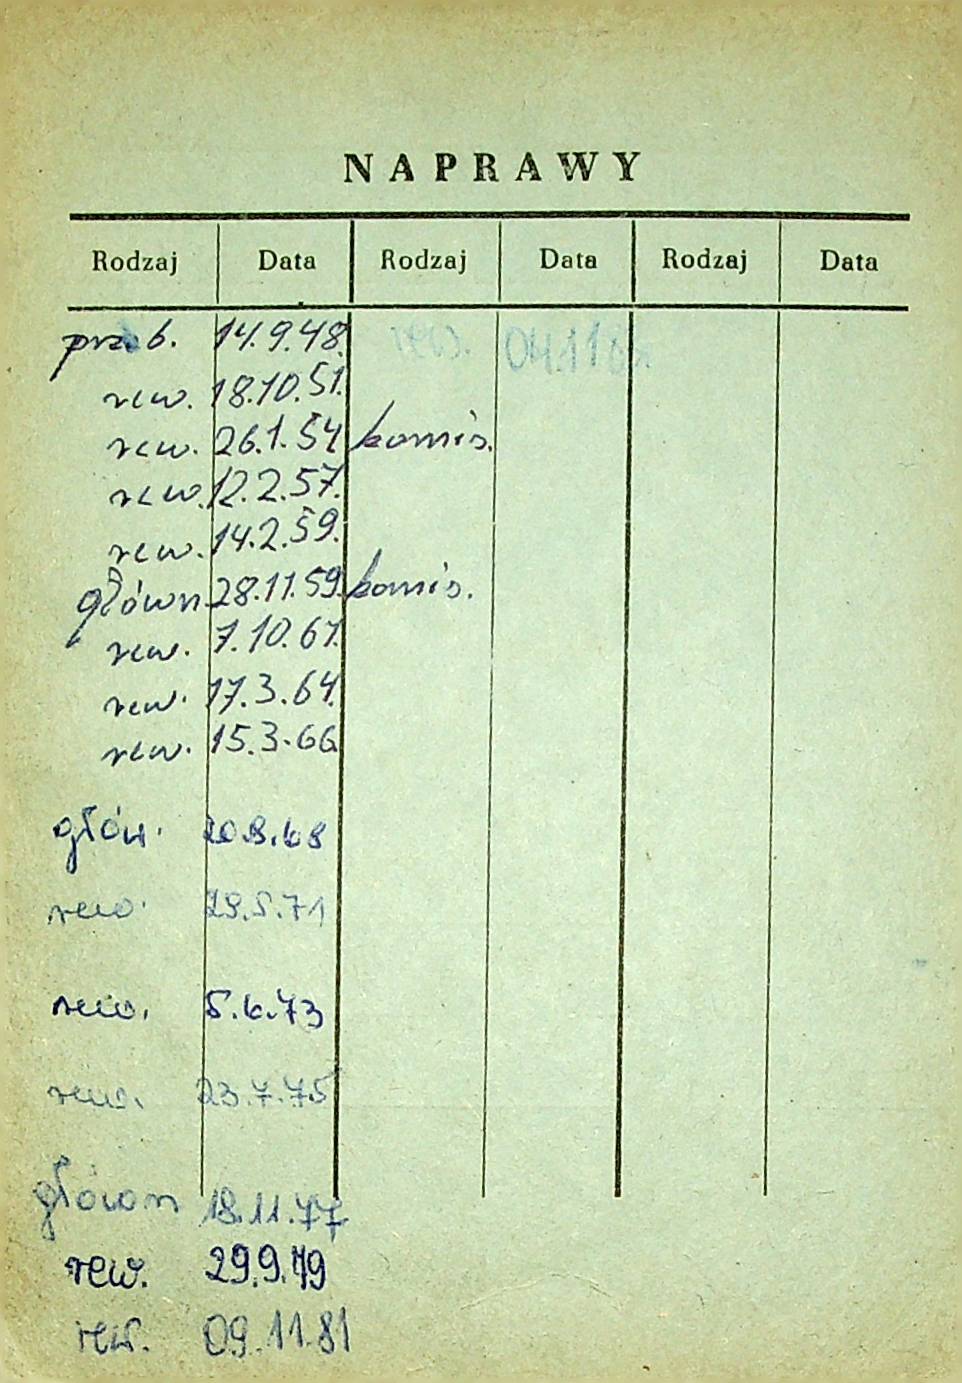 NAPRAWY
Rodzaj Data Rodzaj Data Rodzaj Data
prz. b. 14.9.48. rew.
rew. 18.10.51.
rew. 26.1.54 komis.
rew. 12.2.57.
rew. 14.2.59.
główn. 28.11.59. komis.
rew. 7.10.61.
rew. 17.3.64.
rew. 15.3.66
głów. 20.8.68
rew. 29.5.71
rew. 5.6.73
rew. 23.7.75
główn 18.11.77
rew. 29.9.79
rew. 09.11.81